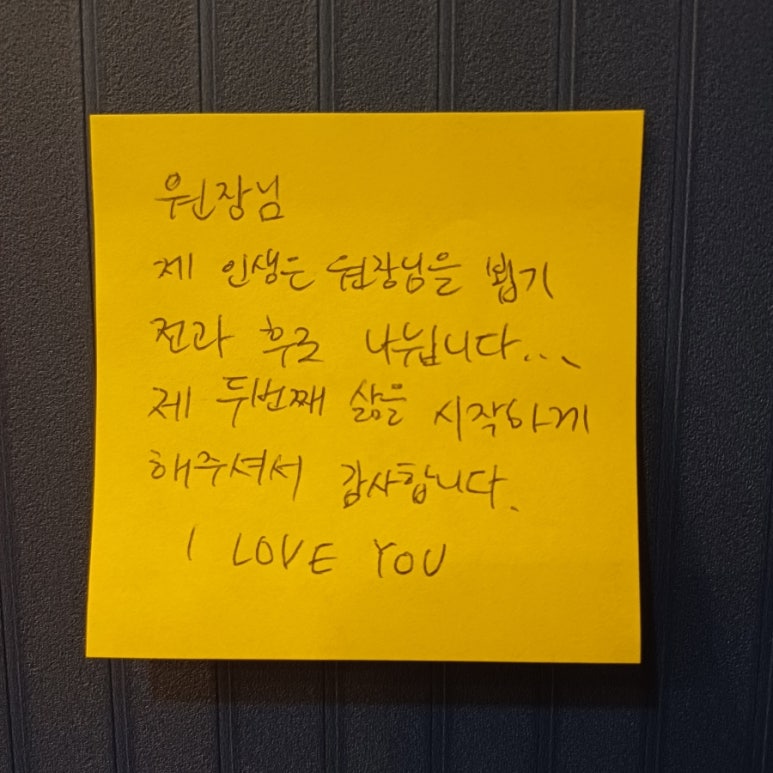 원장님
제 인생은 원장님을 뵙기
전과 후로 나뉩니다...
제 두번째 삶을 시작하게
해주셔서 감사합니다.
I LOVE YOU